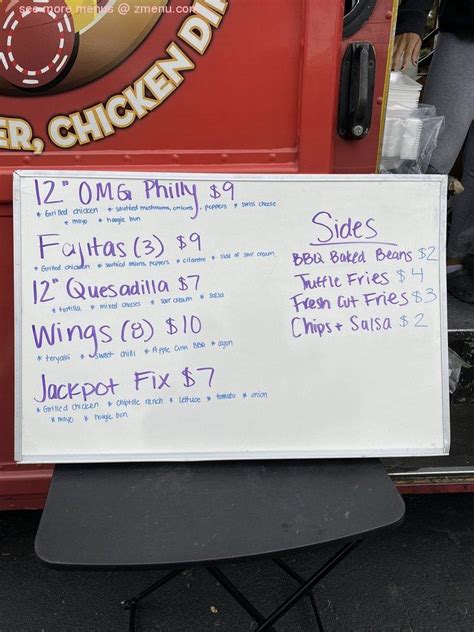 see more menus @ zmenu.com
ER, CHICKEN DI
12" OMG Philly $9
* Grilled chicken * sautéed mushrooms, onions, peppers * swiss cheese
* mayo * hoagie bun
Fajitas (3) $9
* Grilled chicken * sautéed onions, peppers * cilantro * side of sour cream
12" Quesadilla $7
* tortilla * mixed cheeses * sour cream * salsa
Wings (8) $10
* teryaki * sweet chilli * Apple Cinn BBQ * cajun
Jackpot Fix $7
* Grilled chicken * chipotle ranch * lettuce * tomato * onion
* mayo * hoagie bun
Sides
BBQ Baked Beans $2
Truffle Fries $4
Fresh Cut Fries $3
Chips + Salsa $2